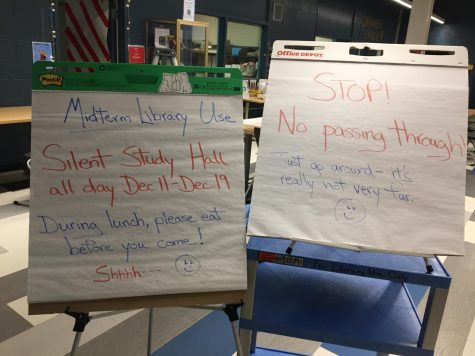 Post-it
Midterm Library Use
Silent Study Hall
all day Dec 11-Dec 19
During lunch, please eat
before you come!
Shhhh---
Office DEPOT
STOP!
No passing through!
Just go around - it's
really not very far.